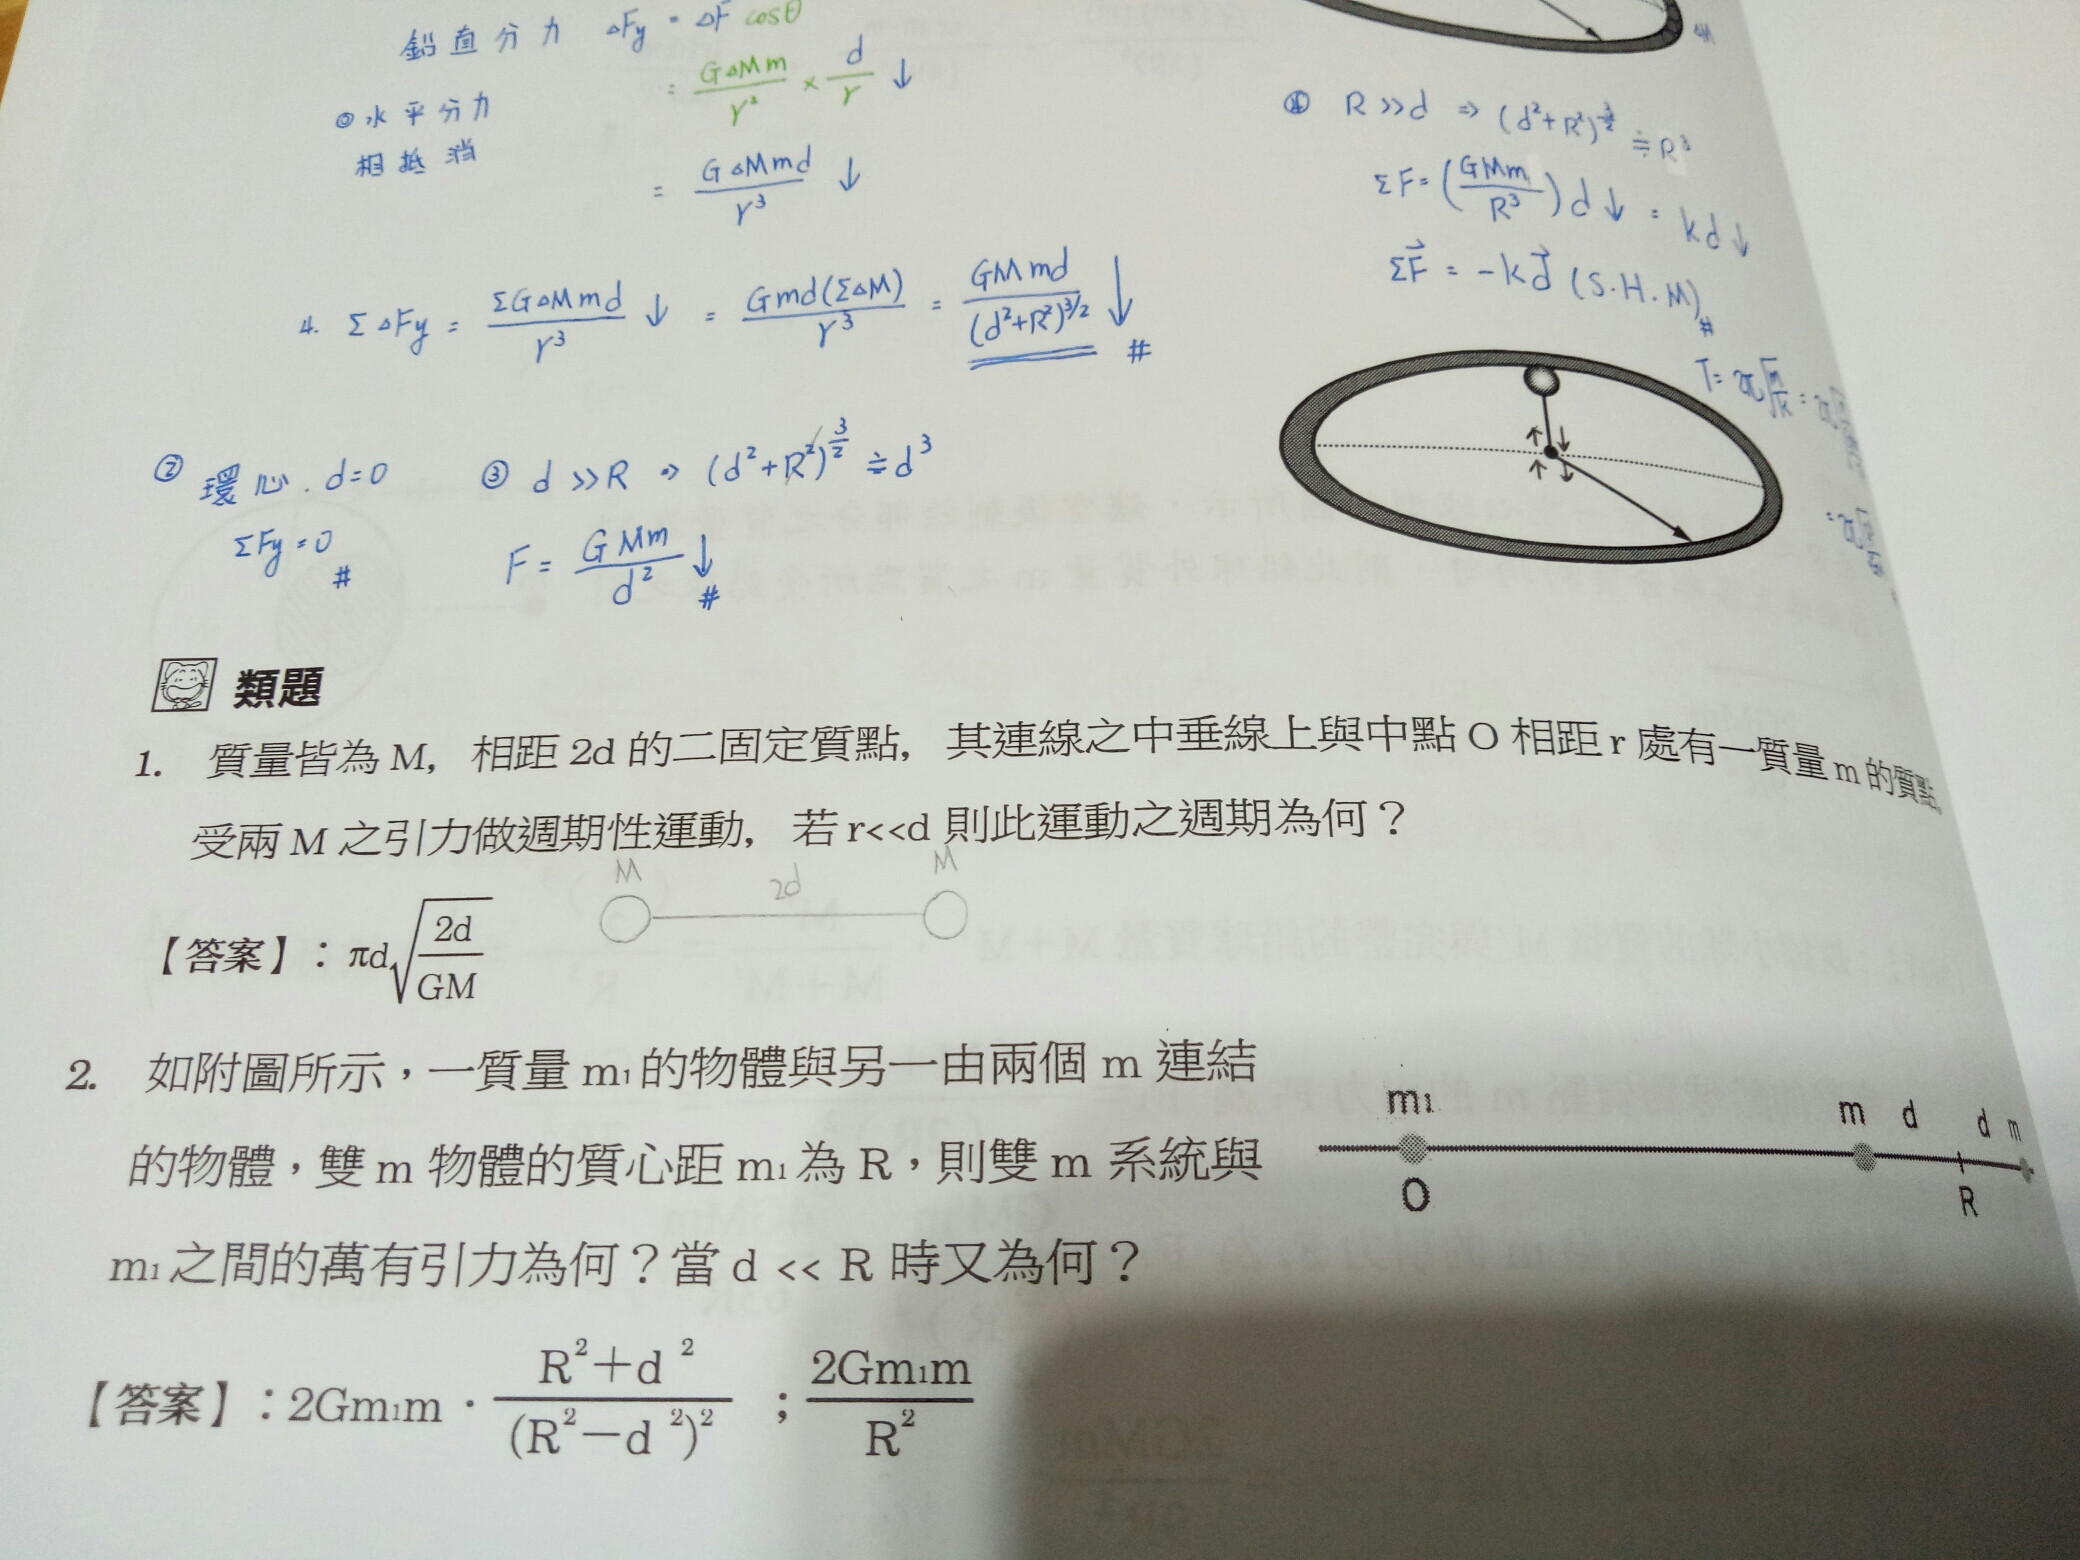 鉛直分力 ΔFy = ΔF cosθ
= GΔMm/r² × d/r ↓
◎水平分力
相抵消
= GΔMmd/r³ ↓
4. ΣΔFy = ΣGΔMmd/r³ ↓ = Gmd(ΣΔM)/r³ = GMmd/(d²+R²)^3/2 ↓ #
② 環心. d=0
ΣFy=0 #
③ d >> R ⇒ (d²+R²)^3/2 ≒ d³
F = GMm/d² ↓ #
ΔM
④ R >> d ⇒ (d²+R²)^3/2 ≒ R³
ΣF = (GMm/R³) d ↓ = kd ↓
ΣF⃗ = -kd⃗ (S.H.M) #
T = 2π√(m/k) =
類題
1. 質量皆為 M, 相距 2d 的二固定質點, 其連線之中垂線上與中點 O 相距 r 處有一質量 m 的質點,
受兩 M 之引力做週期性運動, 若 r<<d 則此運動之週期為何？
M 2d M
【答案】：πd√(2d/GM)
2. 如附圖所示，一質量 m₁ 的物體與另一由兩個 m 連結
的物體，雙 m 物體的質心距 m₁ 為 R，則雙 m 系統與
m₁ 之間的萬有引力為何？當 d << R 時又為何？
m₁ m d d m
O R
【答案】：2Gm₁m · (R²+d²)/(R²−d²)² ；2Gm₁m/R²